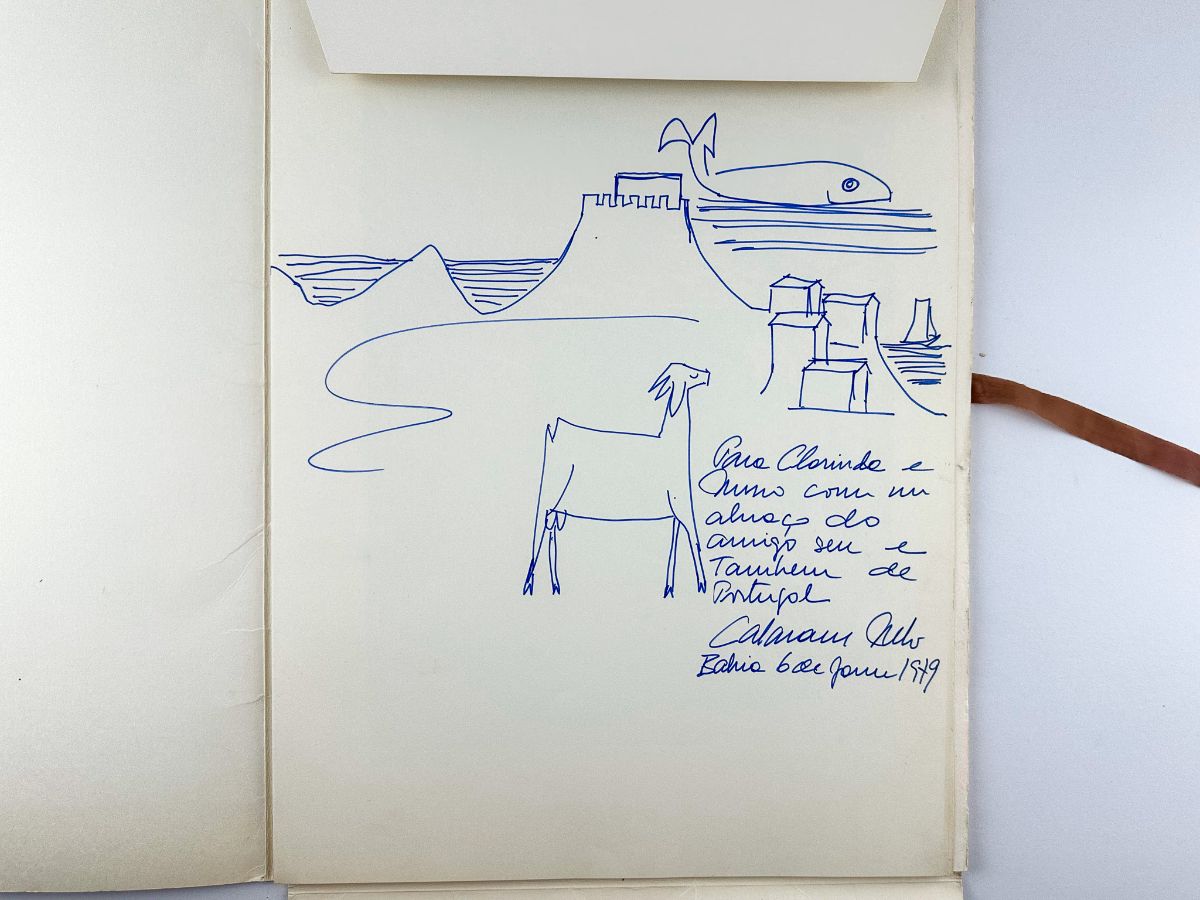 Para Clarinda e
Nuno com um
abraço do
amigo seu e
Tambem de
Portugal
Calasans Neto
Bahia 6 de Janu 1979